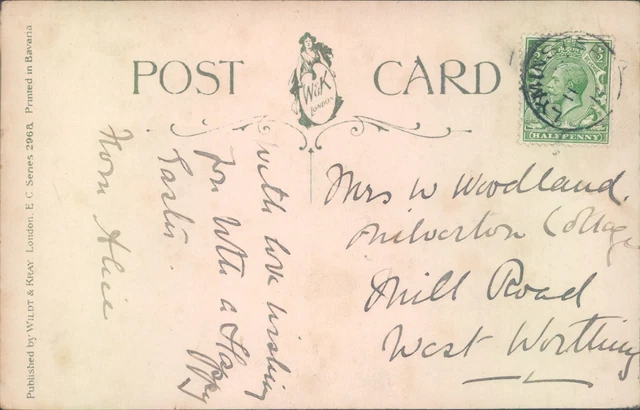 POST CARD
W&K
LONDON
HALFPENNY
Published by WILDT & KRAY London. E C Series 2968. Printed in Bavaria
with love wishing
you both a Happy
Easter
from Alice
Mrs W Woodland.
Milverton Cottage
Mill Road
West Worthing